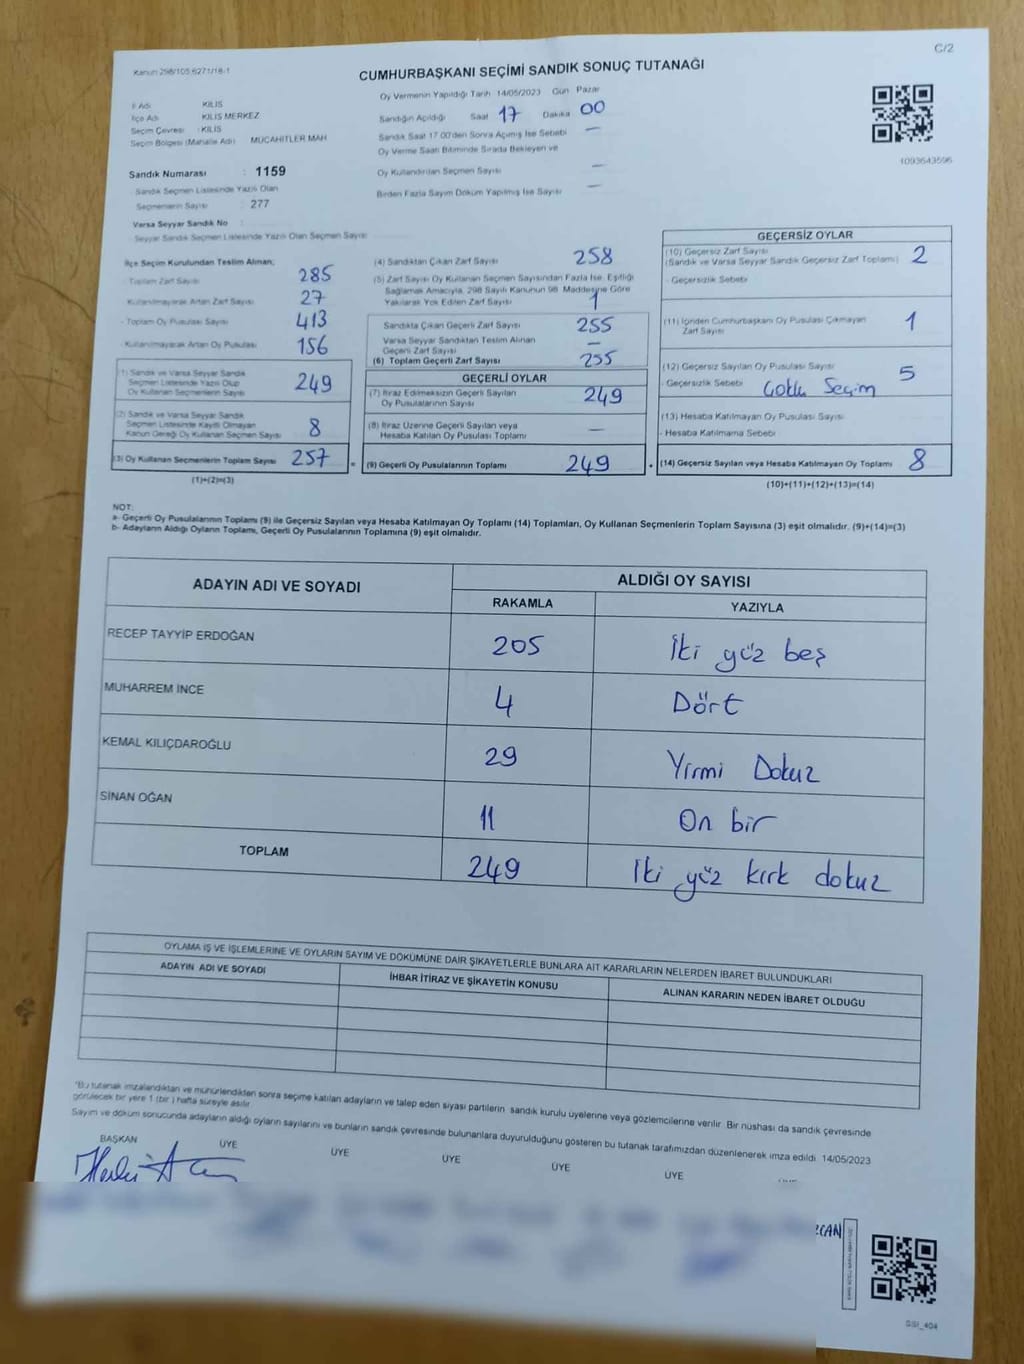 C/2
Kanun 298/105,6271/18-1
CUMHURBAŞKANI SEÇİMİ SANDIK SONUÇ TUTANAĞI
İl Adı KİLİS
İlçe Adı KİLİS MERKEZ
Seçim Çevresi : KİLİS
Seçim Bölgesi (Mahalle Adı) MÜCAHİTLER MAH
Oy Vermenin Yapıldığı Tarih 14/05/2023 Gün Pazar
Sandığın Açıldığı Saat 17 Dakika 00
Sandık Saat 17.00'den Sonra Açılmış İse Sebebi —
Oy Verme Saati Bitiminde Sırada Bekleyen ve
Oy Kullandırılan Seçmen Sayısı —
Birden Fazla Sayım Döküm Yapılmış İse Sayısı —
1093643596
Sandık Numarası : 1159
Sandık Seçmen Listesinde Yazılı Olan
Seçmenlerin Sayısı : 277
Varsa Seyyar Sandık No :
Seyyar Sandık Seçmen Listesinde Yazılı Olan Seçmen Sayısı
İlçe Seçim Kurulundan Teslim Alınan;
- Toplam Zarf Sayısı 285
- Kullanılmayarak Artan Zarf Sayısı 27
- Toplam Oy Pusulası Sayısı 413
- Kullanılmayarak Artan Oy Pusulası 156
(1) Sandık ve Varsa Seyyar Sandık
Seçmen Listesinde Yazılı Olup
Oy Kullanan Seçmenlerin Sayısı 249
(2) Sandık ve Varsa Seyyar Sandık
Seçmen Listesinde Kayıtlı Olmayan
Kanun Gereği Oy Kullanan Seçmen Sayısı 8
(3) Oy Kullanan Seçmenlerin Toplam Sayısı 257
(1)+(2)=(3)
(4) Sandıktan Çıkan Zarf Sayısı 258
(5) Zarf Sayısı Oy Kullanan Seçmen Sayısından Fazla İse, Eşitliği
Sağlamak Amacıyla, 298 Sayılı Kanunun 98. Maddesine Göre
Yakılarak Yok Edilen Zarf Sayısı 1
Sandıkta Çıkan Geçerli Zarf Sayısı 255
Varsa Seyyar Sandıktan Teslim Alınan
Geçerli Zarf Sayısı —
(6) Toplam Geçerli Zarf Sayısı 255
GEÇERLİ OYLAR
(7) İtiraz Edilmeksizin Geçerli Sayılan
Oy Pusulalarının Sayısı 249
(8) İtiraz Üzerine Geçerli Sayılan veya
Hesaba Katılan Oy Pusulası Toplamı —
= (9) Geçerli Oy Pusulalarının Toplamı 249
GEÇERSİZ OYLAR
(10) Geçersiz Zarf Sayısı
(Sandık ve Varsa Seyyar Sandık Geçersiz Zarf Toplamı) 2
- Geçersizlik Sebebi
(11) İçinden Cumhurbaşkanı Oy Pusulası Çıkmayan
Zarf Sayısı 1
(12) Geçersiz Sayılan Oy Pusulası Sayısı 5
- Geçersizlik Sebebi Çoklu Seçim
(13) Hesaba Katılmayan Oy Pusulası Sayısı
- Hesaba Katılmama Sebebi
(14) Geçersiz Sayılan veya Hesaba Katılmayan Oy Toplamı 8
(10)+(11)+(12)+(13)=(14)
NOT:
a- Geçerli Oy Pusulalarının Toplamı (9) ile Geçersiz Sayılan veya Hesaba Katılmayan Oy Toplamı (14) Toplamları, Oy Kullanan Seçmenlerin Toplam Sayısına (3) eşit olmalıdır. (9)+(14)=(3)
b- Adayların Aldığı Oyların Toplamı, Geçerli Oy Pusulalarının Toplamına (9) eşit olmalıdır.
ADAYIN ADI VE SOYADI
ALDIĞI OY SAYISI
RAKAMLA YAZIYLA
RECEP TAYYİP ERDOĞAN 205 İki yüz beş
MUHARREM İNCE 4 Dört
KEMAL KILIÇDAROĞLU 29 Yirmi Dokuz
SİNAN OĞAN 11 On bir
TOPLAM 249 İki yüz kırk dokuz
OYLAMA İŞ VE İŞLEMLERİNE VE OYLARIN SAYIM VE DÖKÜMÜNE DAİR ŞİKAYETLERLE BUNLARA AİT KARARLARIN NELERDEN İBARET BULUNDUKLARI
ADAYIN ADI VE SOYADI İHBAR İTİRAZ VE ŞİKAYETİN KONUSU ALINAN KARARIN NEDEN İBARET OLDUĞU
"Bu tutanak imzalandıktan ve mühürlendikten sonra seçime katılan adayların ve talep eden siyasi partilerin sandık kurulu üyelerine veya gözlemcilerine verilir. Bir nüshası da sandık çevresinde
görülecek bir yere 1 (bir) hafta süreyle asılır.
Sayım ve döküm sonucunda adayların aldığı oyların sayılarını ve bunların sandık çevresinde bulunanlara duyurulduğunu gösteren bu tutanak tarafımızdan düzenlenerek imza edildi. 14/05/2023
BAŞKAN ÜYE ÜYE ÜYE ÜYE ÜYE
SSİ_404